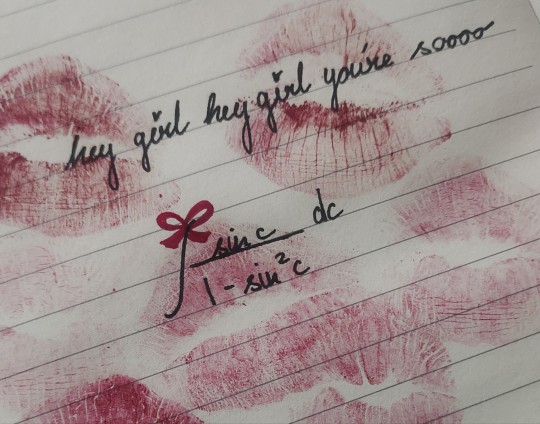 hey girl hey girl you're soooo
∫ sin c / 1 - sin² c dc